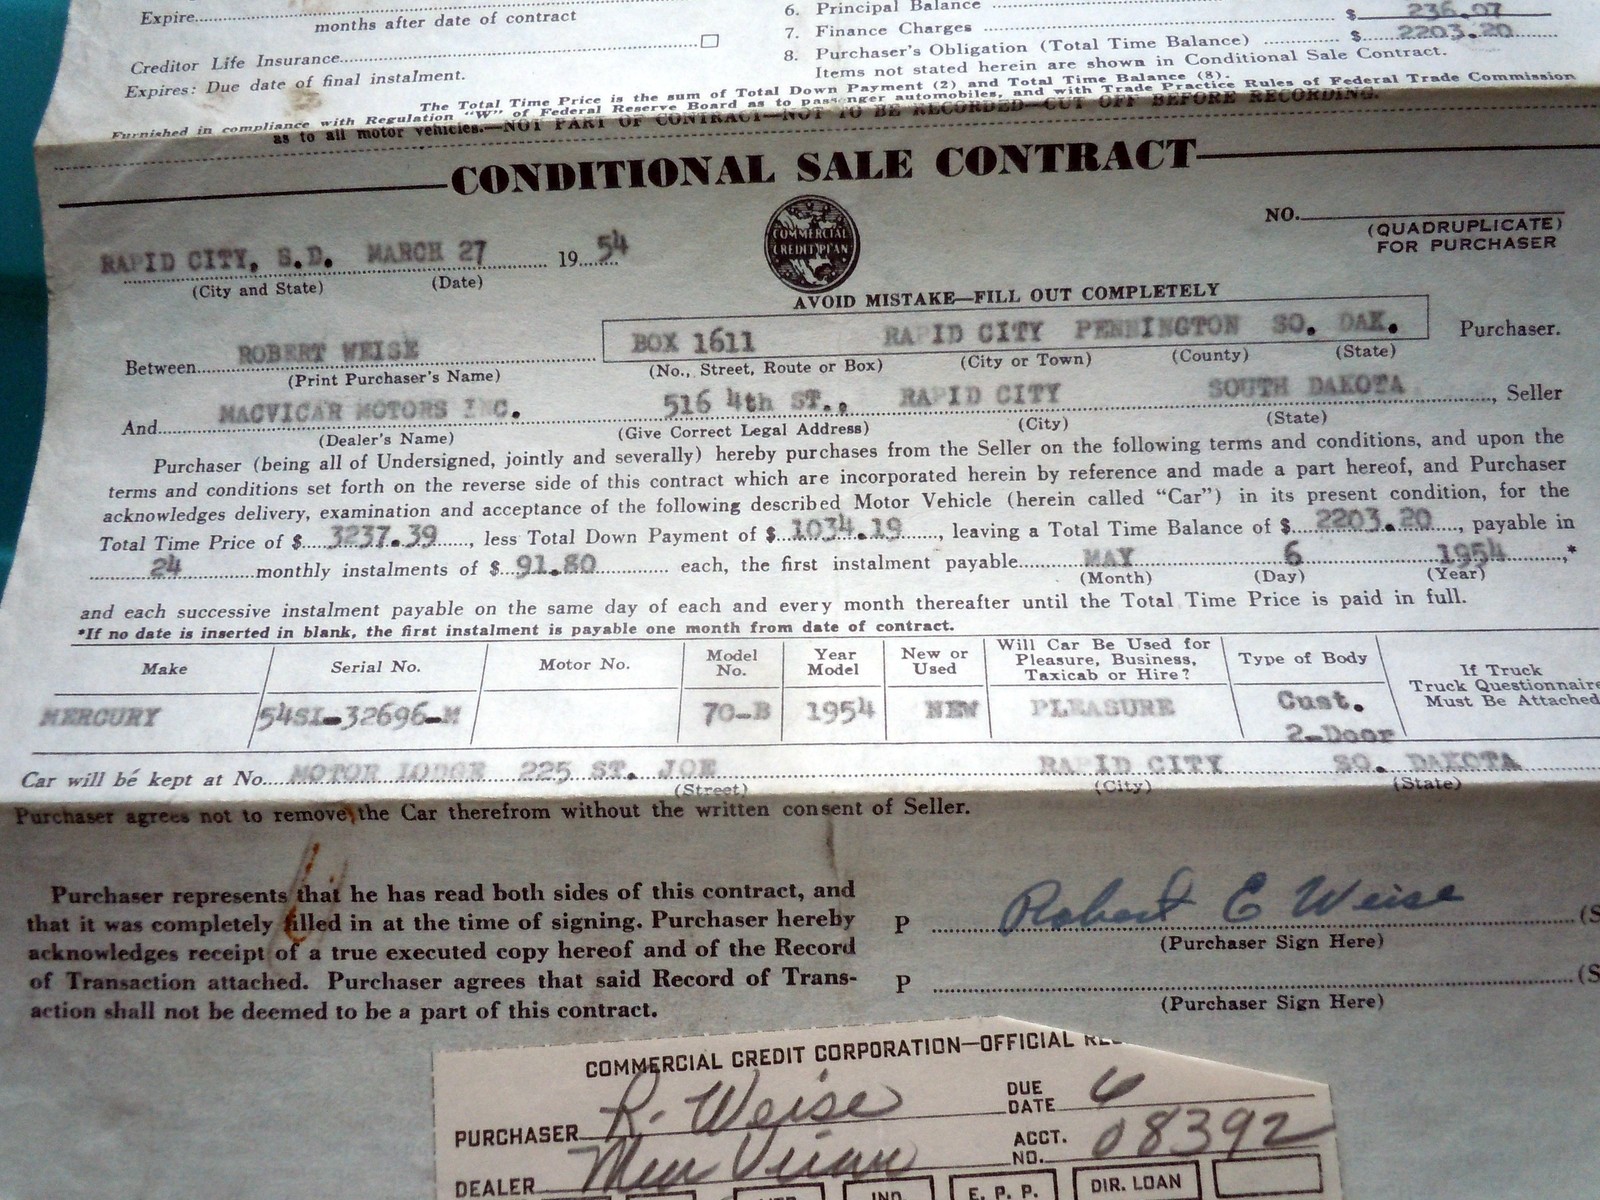 Expire
months after date of contract
Creditor Life Insurance
Expires: Due date of final instalment.
6. Principal Balance
7. Finance Charges $ 236.07
8. Purchaser's Obligation (Total Time Balance) $ 2203.20
Items not stated herein are shown in Conditional Sale Contract.
The Total Time Price is the sum of Total Down Payment (2) and Total Time Balance (8).
Furnished in compliance with Regulation "W" of Federal Reserve Board as to passenger automobiles, and with Trade Practice Rules of Federal Trade Commission
as to all motor vehicles.—NOT PART OF CONTRACT—NOT TO BE RECORDED—CUT OFF BEFORE RECORDING.
CONDITIONAL SALE CONTRACT
COMMERCIAL
CREDIT PLAN
NO.
(QUADRUPLICATE)
FOR PURCHASER
RAPID CITY, S.D. MARCH 27 19 54
(City and State) (Date)
AVOID MISTAKE—FILL OUT COMPLETELY
Between ROBERT WEISE BOX 1611 RAPID CITY PENNINGTON SO. DAK. Purchaser.
(Print Purchaser's Name) (No., Street, Route or Box) (City or Town) (County) (State)
And MACVICAR MOTORS INC. 516 4th ST., RAPID CITY SOUTH DAKOTA, Seller
(Dealer's Name) (Give Correct Legal Address) (City) (State)
Purchaser (being all of Undersigned, jointly and severally) hereby purchases from the Seller on the following terms and conditions, and upon the
terms and conditions set forth on the reverse side of this contract which are incorporated herein by reference and made a part hereof, and Purchaser
acknowledges delivery, examination and acceptance of the following described Motor Vehicle (herein called "Car") in its present condition, for the
Total Time Price of $ 3237.39, less Total Down Payment of $ 1034.19, leaving a Total Time Balance of $ 2203.20, payable in
24 monthly instalments of $ 91.80 each, the first instalment payable MAY 6 1954,*
(Month) (Day) (Year)
and each successive instalment payable on the same day of each and every month thereafter until the Total Time Price is paid in full.
*If no date is inserted in blank, the first instalment is payable one month from date of contract.
Make Serial No. Motor No. Model No. Year Model New or Used Will Car Be Used for Pleasure, Business, Taxicab or Hire? Type of Body If Truck Truck Questionnaire Must Be Attached
MERCURY 54SL-32696-M 70-B 1954 NEW PLEASURE Cust. 2-Door
Car will be kept at No. MOTOR LODGE 225 ST. JOE RAPID CITY SO. DAKOTA
(Street) (City) (State)
Purchaser agrees not to remove the Car therefrom without the written consent of Seller.
Purchaser represents that he has read both sides of this contract, and
that it was completely filled in at the time of signing. Purchaser hereby
acknowledges receipt of a true executed copy hereof and of the Record
of Transaction attached. Purchaser agrees that said Record of Trans-
action shall not be deemed to be a part of this contract.
P Robert E Weise (S
(Purchaser Sign Here)
P (S
(Purchaser Sign Here)
COMMERCIAL CREDIT CORPORATION—OFFICIAL
PURCHASER R. Weise DUE DATE 6
DEALER ACCT. NO. 08392
IND. E. P. P. DIR. LOAN